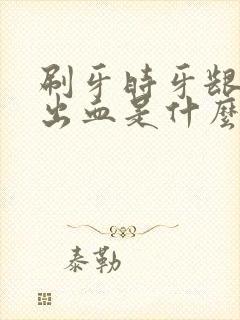 刷牙時牙龈
出血是什麼
泰勒